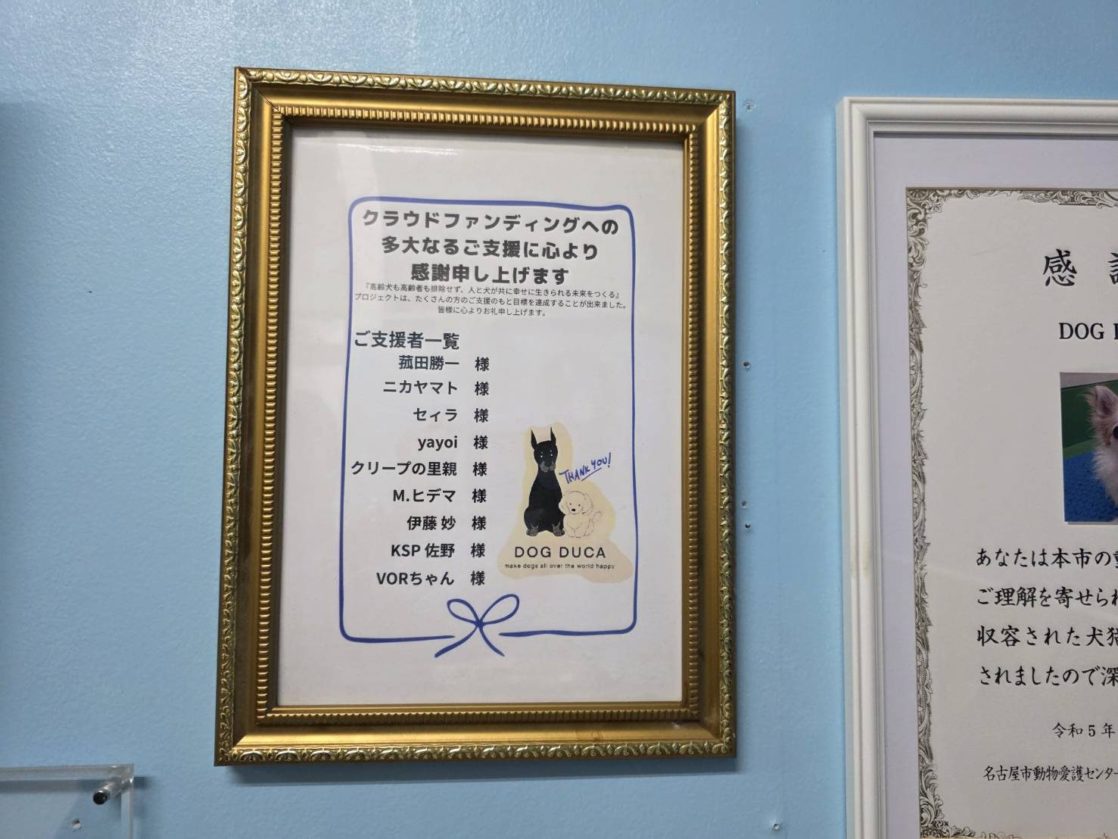 クラウドファンディングへの
多大なるご支援に心より
感謝申し上げます
『高齢犬も高齢者も排除せず、人と犬が共に幸せに生きられる未来をつくる』
プロジェクトは、たくさんの方のご支援のもと目標を達成することが出来ました。
皆様に心よりお礼申し上げます。
ご支援者一覧
菰田勝一 様
ニカヤマト 様
セィラ 様
yayoi 様
クリープの里親 様
M.ヒデマ 様
伊藤 妙 様
KSP 佐野 様
VORちゃん 様
THANK YOU!
DOG DUCA
make dogs all over the world happy
感
DOG
あなたは本市の
ご理解を寄せられ
収容された犬猫
されましたので深
令和5年
名古屋市動物愛護センター